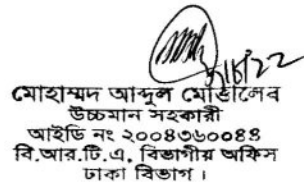 ৮/৮/২২
মোহাম্মদ আব্দুল মোতালেব
উচ্চমান সহকারী
আইডি নং ২০০৪৩৬০০৪৪
বি.আর.টি.এ, বিভাগীয় অফিস
ঢাকা বিভাগ।